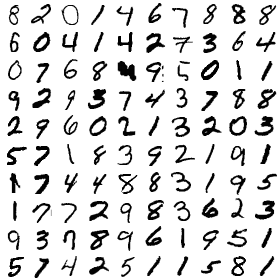 8 2 0 1 4 6 7 8 8 8
6 0 4 1 4 2 7 3 6 4
0 7 6 8 9 5 0 1 1
9 2 9 3 7 4 3 7 8 8
2 9 6 0 2 1 3 2 0 3
5 7 1 8 3 9 2 1 9 1
1 7 4 4 8 8 3 1 9 5
1 7 7 2 9 8 3 6 2 3
9 3 7 8 9 6 1 9 5 1
5 7 4 2 5 1 1 5 8 1